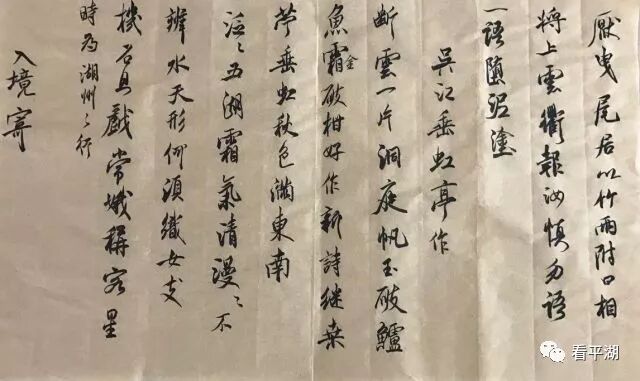 厭曳尾居以竹兩附口相
將上雲衢報汝慎勿語
一語墮泥塗
吳江垂虹亭作
斷雲一片洞庭帆玉破鱸
魚霜金破柑好作新詩繼桑
苧垂虹秋色滿東南
泛〻五湖霜氣清漫〻不
辨水天形何須織女支
機石且戲常娥稱客星
時為湖州之行
入境寄
看平湖